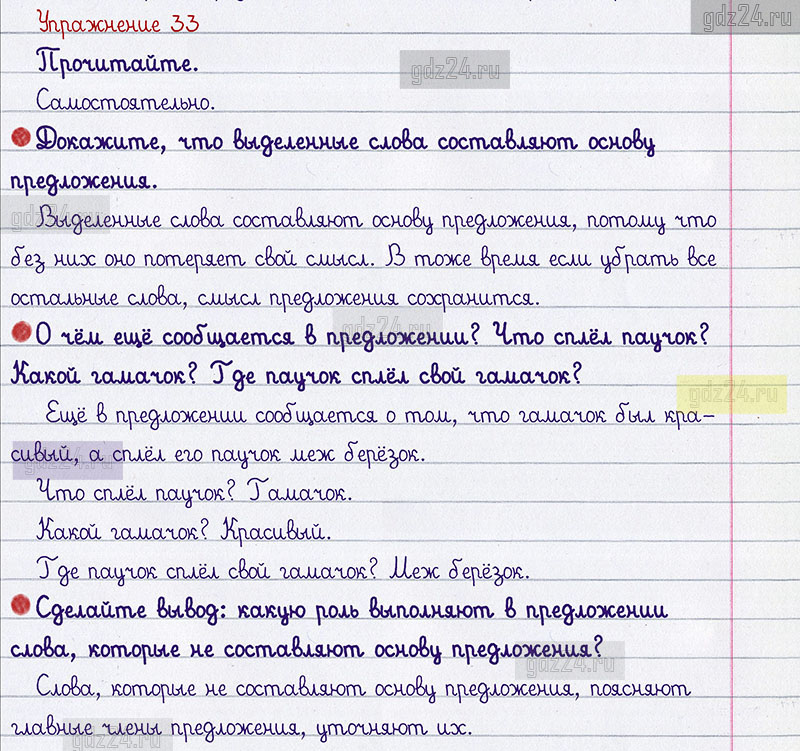 gdz24.ru
Упражнение 33
Прочитайте.
gdz24.ru
Самостоятельно.
Докажите, что выделенные слова составляют основу
предложения.
gdz24.ru
Выделенные слова составляют основу предложения, потому что
без них оно потеряет свой смысл. В тоже время если убрать все
остальные слова, смысл предложения сохранится.
gdz24.ru
О чём ещё сообщается в предложении? Что сплёл паучок?
Какой гамачок? Где паучок сплёл свой гамачок?
gdz24.ru
Ещё в предложении сообщается о том, что гамачок был кра-
сивый, а сплёл его паучок меж берёзок.
gdz24.ru
Что сплёл паучок? Гамачок.
Какой гамачок? Красивый.
Где паучок сплёл свой гамачок? Меж берёзок.
Сделайте вывод: какую роль выполняют в предложении
слова, которые не составляют основу предложения?
gdz24.ru
Слова, которые не составляют основу предложения, поясняют
главные члены предложения, уточняют их.
gdz24.ru